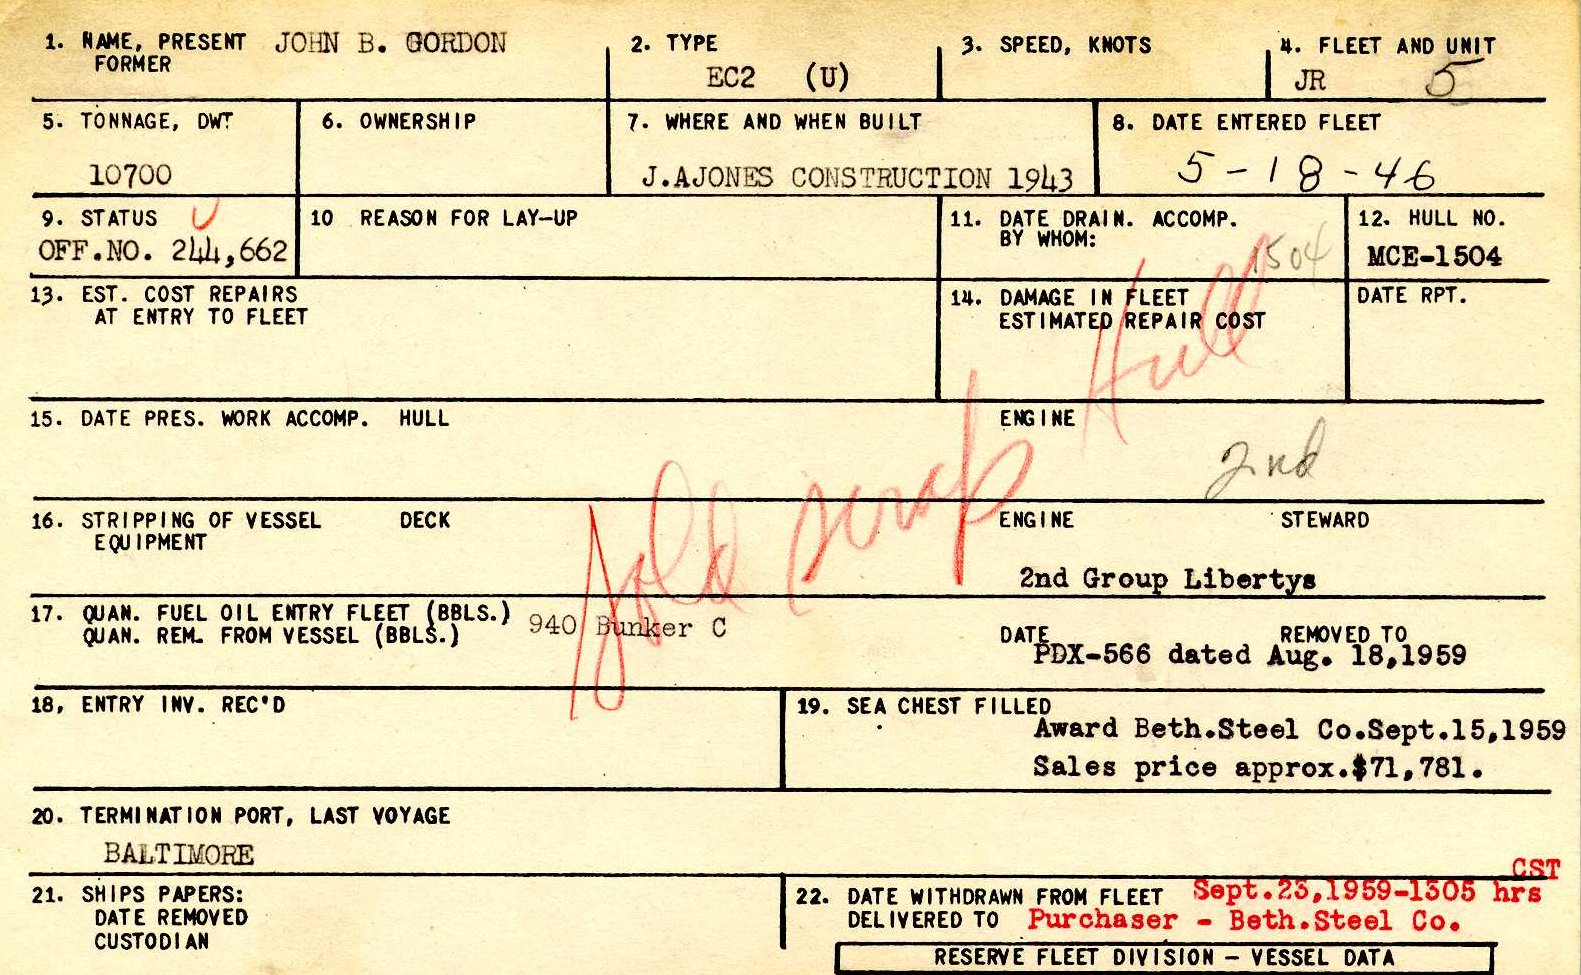 1. NAME, PRESENT JOHN B. GORDON
FORMER
2. TYPE
EC2 (U)
3. SPEED, KNOTS
4. FLEET AND UNIT
JR 5
5. TONNAGE, DWT
10700
6. OWNERSHIP
7. WHERE AND WHEN BUILT
J.AJONES CONSTRUCTION 1943
8. DATE ENTERED FLEET
5-18-46
9. STATUS U
OFF.NO. 244,662
10 REASON FOR LAY-UP
11. DATE DRAIN. ACCOMP.
BY WHOM:
1504
12. HULL NO.
MCE-1504
13. EST. COST REPAIRS
AT ENTRY TO FLEET
14. DAMAGE IN FLEET
ESTIMATED REPAIR COST
DATE RPT.
15. DATE PRES. WORK ACCOMP. HULL ENGINE
2nd
Sold scrap Hull
16. STRIPPING OF VESSEL DECK ENGINE STEWARD
EQUIPMENT
2nd Group Libertys
17. QUAN. FUEL OIL ENTRY FLEET (BBLS.) 940 Bunker C
QUAN. REM. FROM VESSEL (BBLS.) DATE REMOVED TO
PDX-566 dated Aug. 18,1959
18, ENTRY INV. REC'D
19. SEA CHEST FILLED
Award Beth.Steel Co.Sept.15,1959
Sales price approx.$71,781.
20. TERMINATION PORT, LAST VOYAGE
BALTIMORE
21. SHIPS PAPERS:
DATE REMOVED
CUSTODIAN
CST
22. DATE WITHDRAWN FROM FLEET Sept.23,1959-1305 hrs
DELIVERED TO Purchaser - Beth.Steel Co.
RESERVE FLEET DIVISION - VESSEL DATA